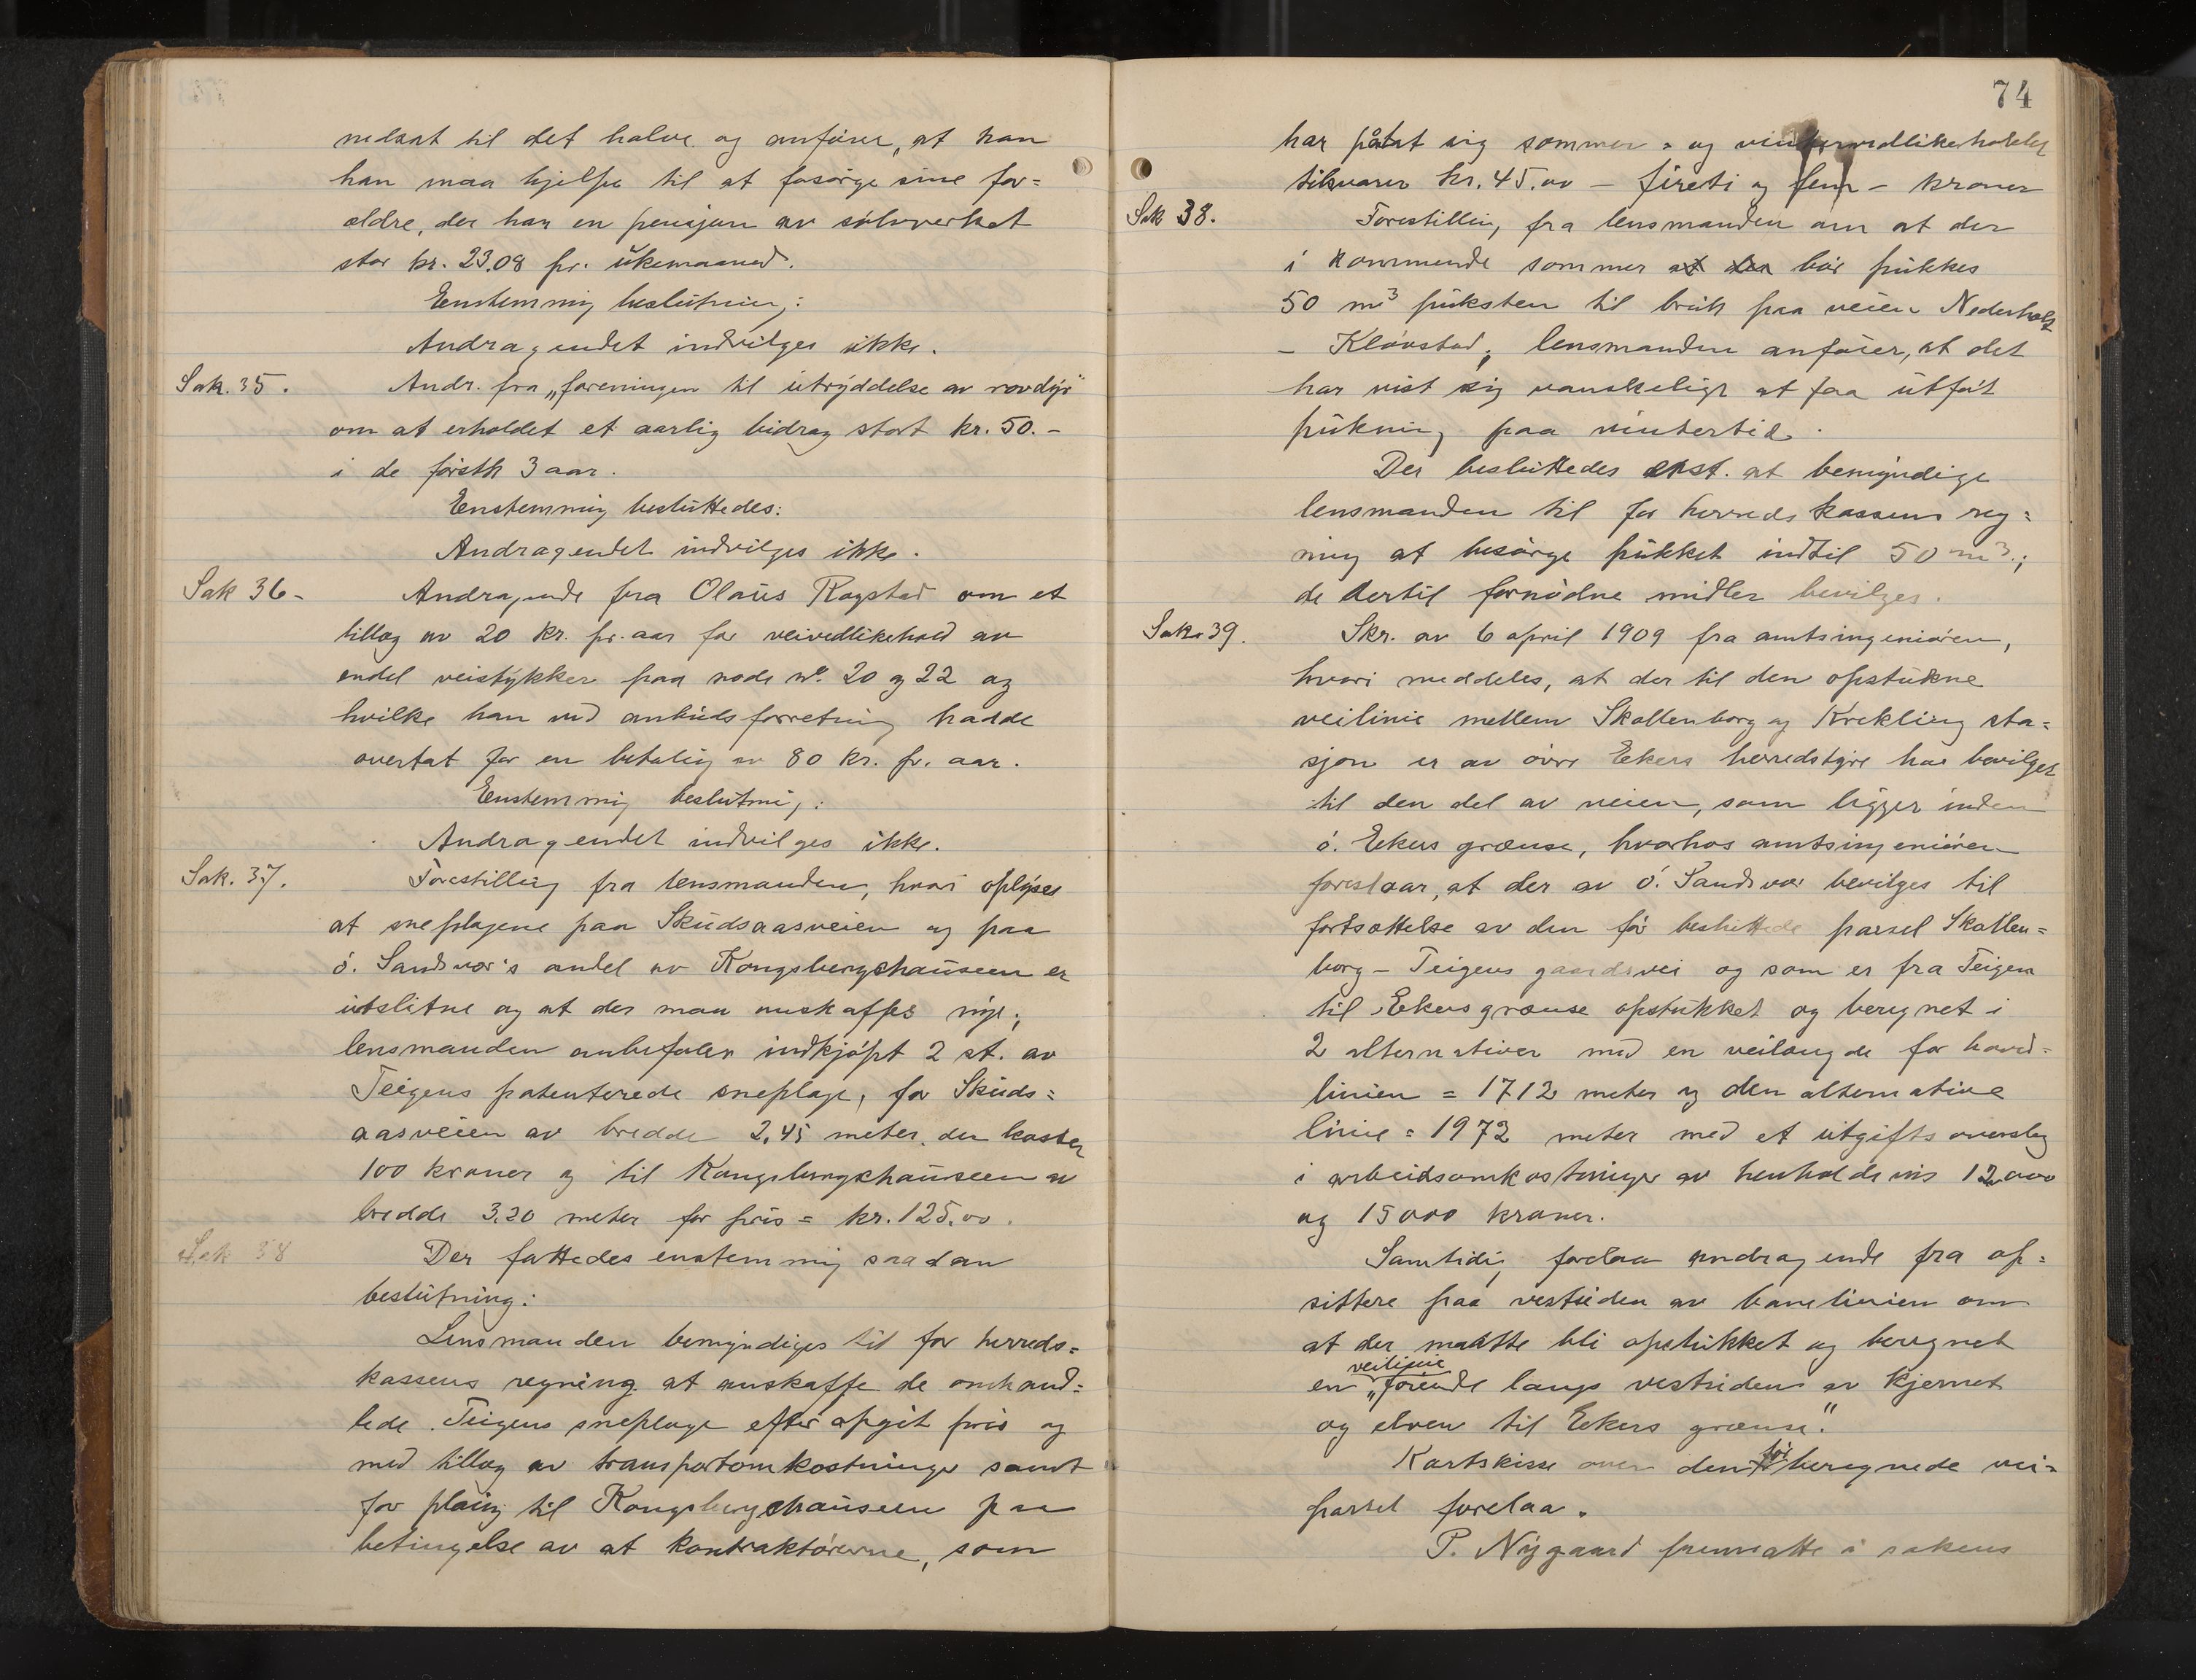 nedsat til det halve og anfører, at han
han maa hjelpe til at forsørge sine for=
ældre, der har en pensjon av sølvverket
stor kr. 23.08 pr. ukemaaned.
Enstemmig beslutning:
Andragendet indvilges ikke.
Sak. 35. Andr. fra „foreningen til utryddelse av rovdyr"
om at erholdet et aarlig bidrag stort kr. 50.-
i de første 3 aar.
Enstemmig besluttedes:
Andragendet indvilges ikke.
Sak 36- Andragende fra Olaus Rogstad om et
tillæg av 20 kr. pr. aar for veivedlikehold av
endel veistykker paa rode no. 20 og 22 og
hvilke han ved anbudsforretning hadde
overtat for en betaling av 80 kr. pr. aar.
Enstemmig beslutning:
Andragendet indvilges ikke.
Sak. 37. Forestilling fra lensmanden, hvori oplyses
at sneplogene paa Skudsaasveien og paa
ø. Sandsvær's andel av Kongsbergchauseen er
utslitne og at der maa anskaffes nye;
lensmanden anbefaler indkjøpt 2 st. av
Teigens patenterede sneploge, for Skuds=
aasveien av bredde 2,45 meter, der koster
100 kroner og til Kongsbergchauseen av
bredde 3.20 meter for pris = kr. 125.00.
Sak 38 Der fattedes enstemmig saadan
beslutning:
Lensmanden bemyndiges til for herreds=
kassens regning at anskaffe de omhand=
lede Teigens sneploge efter opgit pris og
med tillæg av transportomkostninger samt
for pløing til Kongsbergchauseen paa
betingelse av at kontraktørerne, som
74
har påtat sig sommer= og vintervedlikeholdet
tilsvarer kr. 45.00 - fireti og fem - kroner
Sak 38. Forestilling fra lensmanden om at der
i kommende sommer at der bør pukkes
50 m3 puksten til bruk paa veien Nederholt
- Kløvstad; lensmanden anfører, at det
har vist sig vanskeligt at faa utført
pukning paa vintertid.
Der besluttedes enst. at bemyndige
lensmanden til for herredskassens reg=
ning at besørge pukket indtil 50 m3.;
de dertil fornødne midler bevilges.
Sak. 39. Skr. av 6 april 1909 fra amtsingeniøren,
hvori meddeles, at der til den opstukne
veilinie mellem Skollenborg og Krekling sta=
sjon er av øvre Ekers herredstyre har bevilget
til den del av veien, som ligger inden
ø. Ekers grænse, hvorhos amtsingeniøren
foreslaar, at der av ø. Sandsvær bevilges til
fortsættelse av den før besluttede parsel Skollen=
borg - Teigens gaardsvei og som er fra Teigen
til Ekers grænse opstukket og beregnet i
2 alternativer med en veilængde for hoved=
linien = 1712 meter og den alternative
linie = 1972 meter med et utgiftsoverslag
i arbeidsomkostninger av henholdsvis 12000
og 15000 kroner.
Samtidig forelaa andragende fra op=
sittere paa vestsiden av banelinien om
at der maatte bli opstukket og beregnet
en veilinie „førende langs vestsiden av kjernet
og elven til Ekers grænse".
Kartskisse over den før beregnede vei=
parsel forelaa.
P. Nygaard fremsatte i sakens